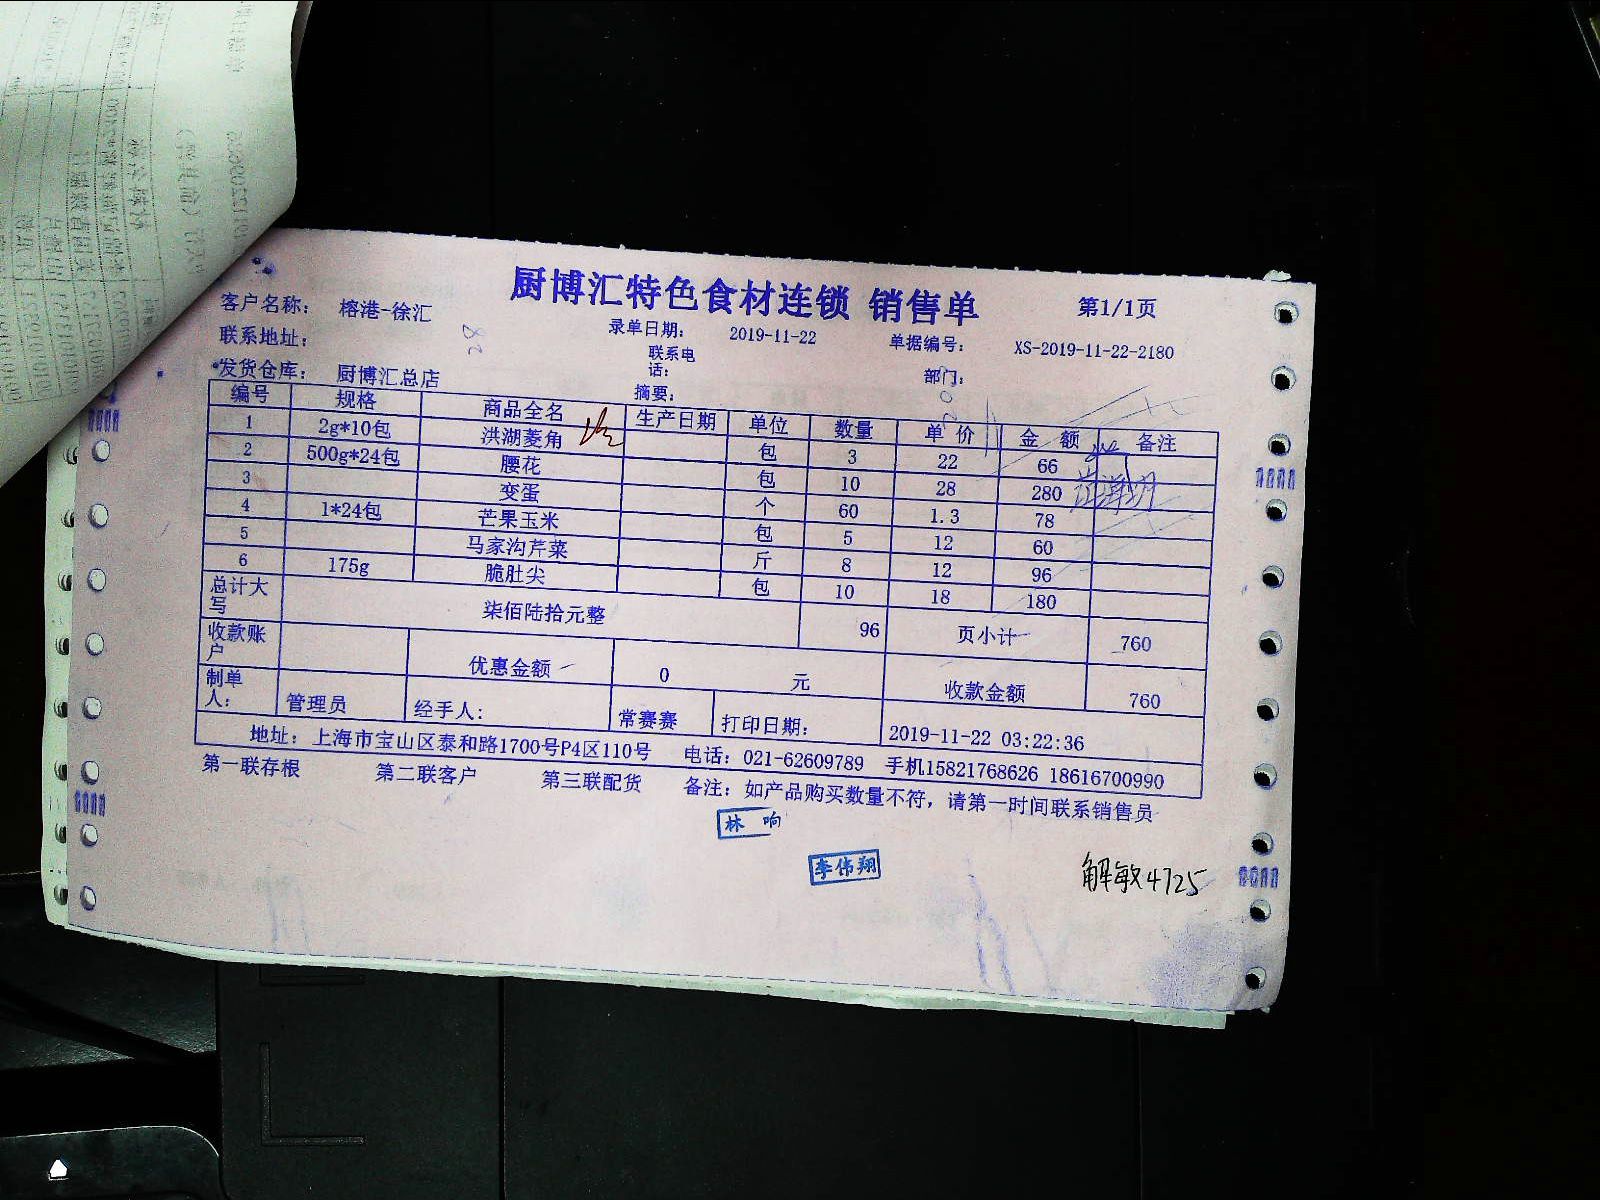 厨博汇特色食材连锁 销售单 第1/1页
客户名称： 榕港-徐汇 录单日期： 2019-11-22 单据编号： XS-2019-11-22-2180
联系地址： 联系电话： 部门：
发货仓库： 厨博汇总店 摘要：
编号 规格 商品全名 生产日期 单位 数量 单 价 金 额 备注
1 2g*10包 洪湖菱角 包 3 22 66
2 500g*24包 腰花 包 10 28 280
3 变蛋 个 60 1.3 78
4 1*24包 芒果玉米 包 5 12 60
5 马家沟芹菜 斤 8 12 96
6 175g 脆肚尖 包 10 18 180
总计大写 柒佰陆拾元整 96 页小计 760
收款账户 优惠金额 0 元 收款金额 760
制单人： 管理员 经手人： 常赛赛 打印日期： 2019-11-22 03:22:36
地址：上海市宝山区泰和路1700号P4区110号 电话：021-62609789 手机15821768626 18616700990
第一联存根 第二联客户 第三联配货 备注：如产品购买数量不符，请第一时间联系销售员
林 响
李伟翔
解敏4725